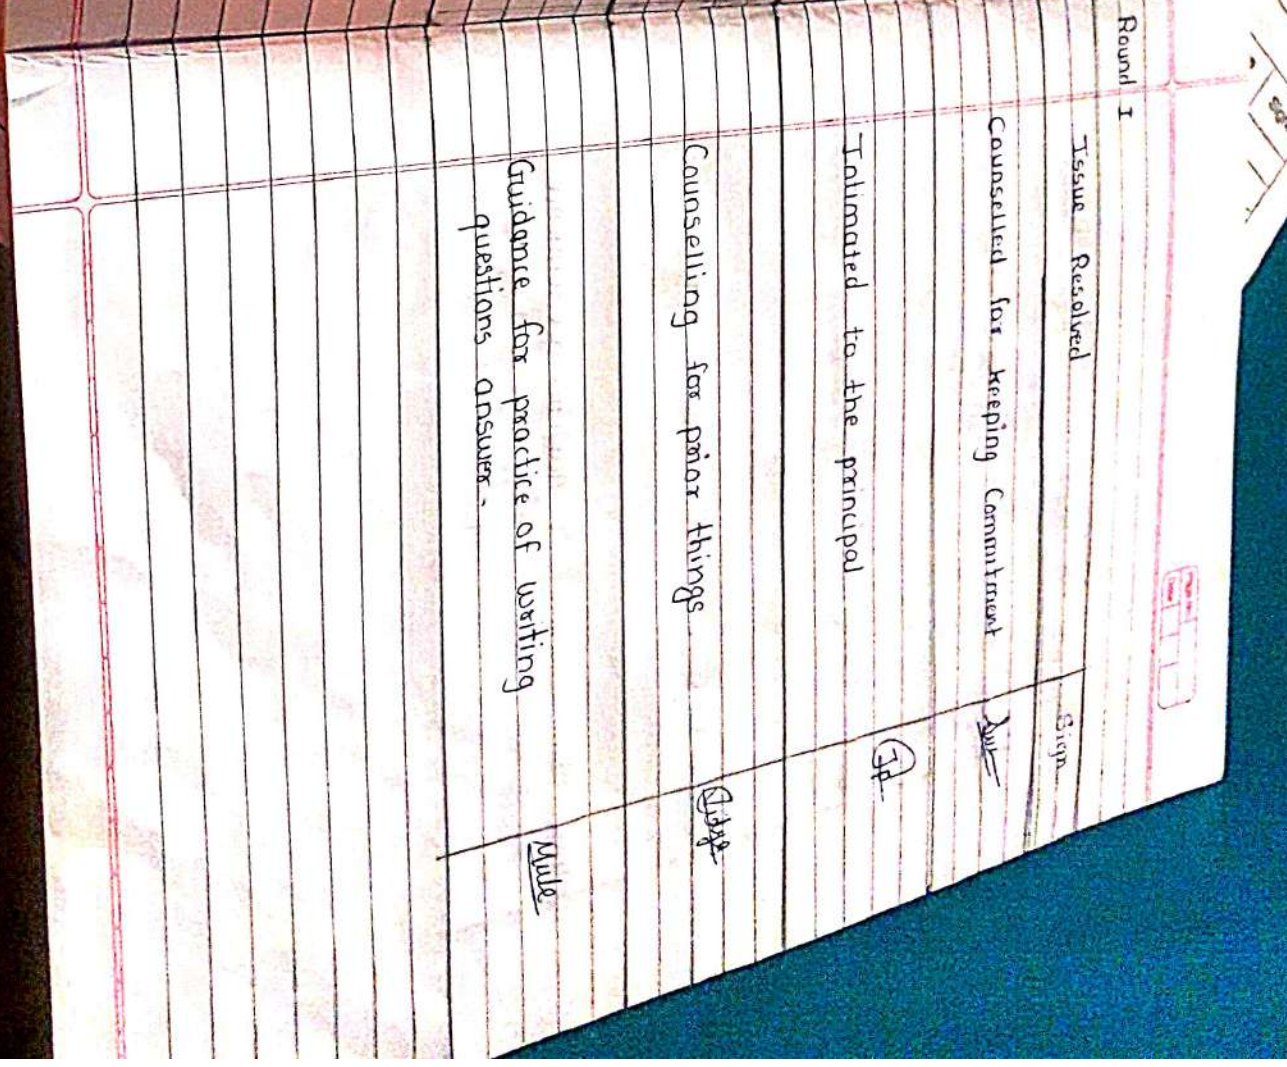 Round I
Issue Resolved Sign
Counselled for keeping Commitment
Intimated to the principal
Counselling for prior things
Guidance for practice of writing
questions answer.